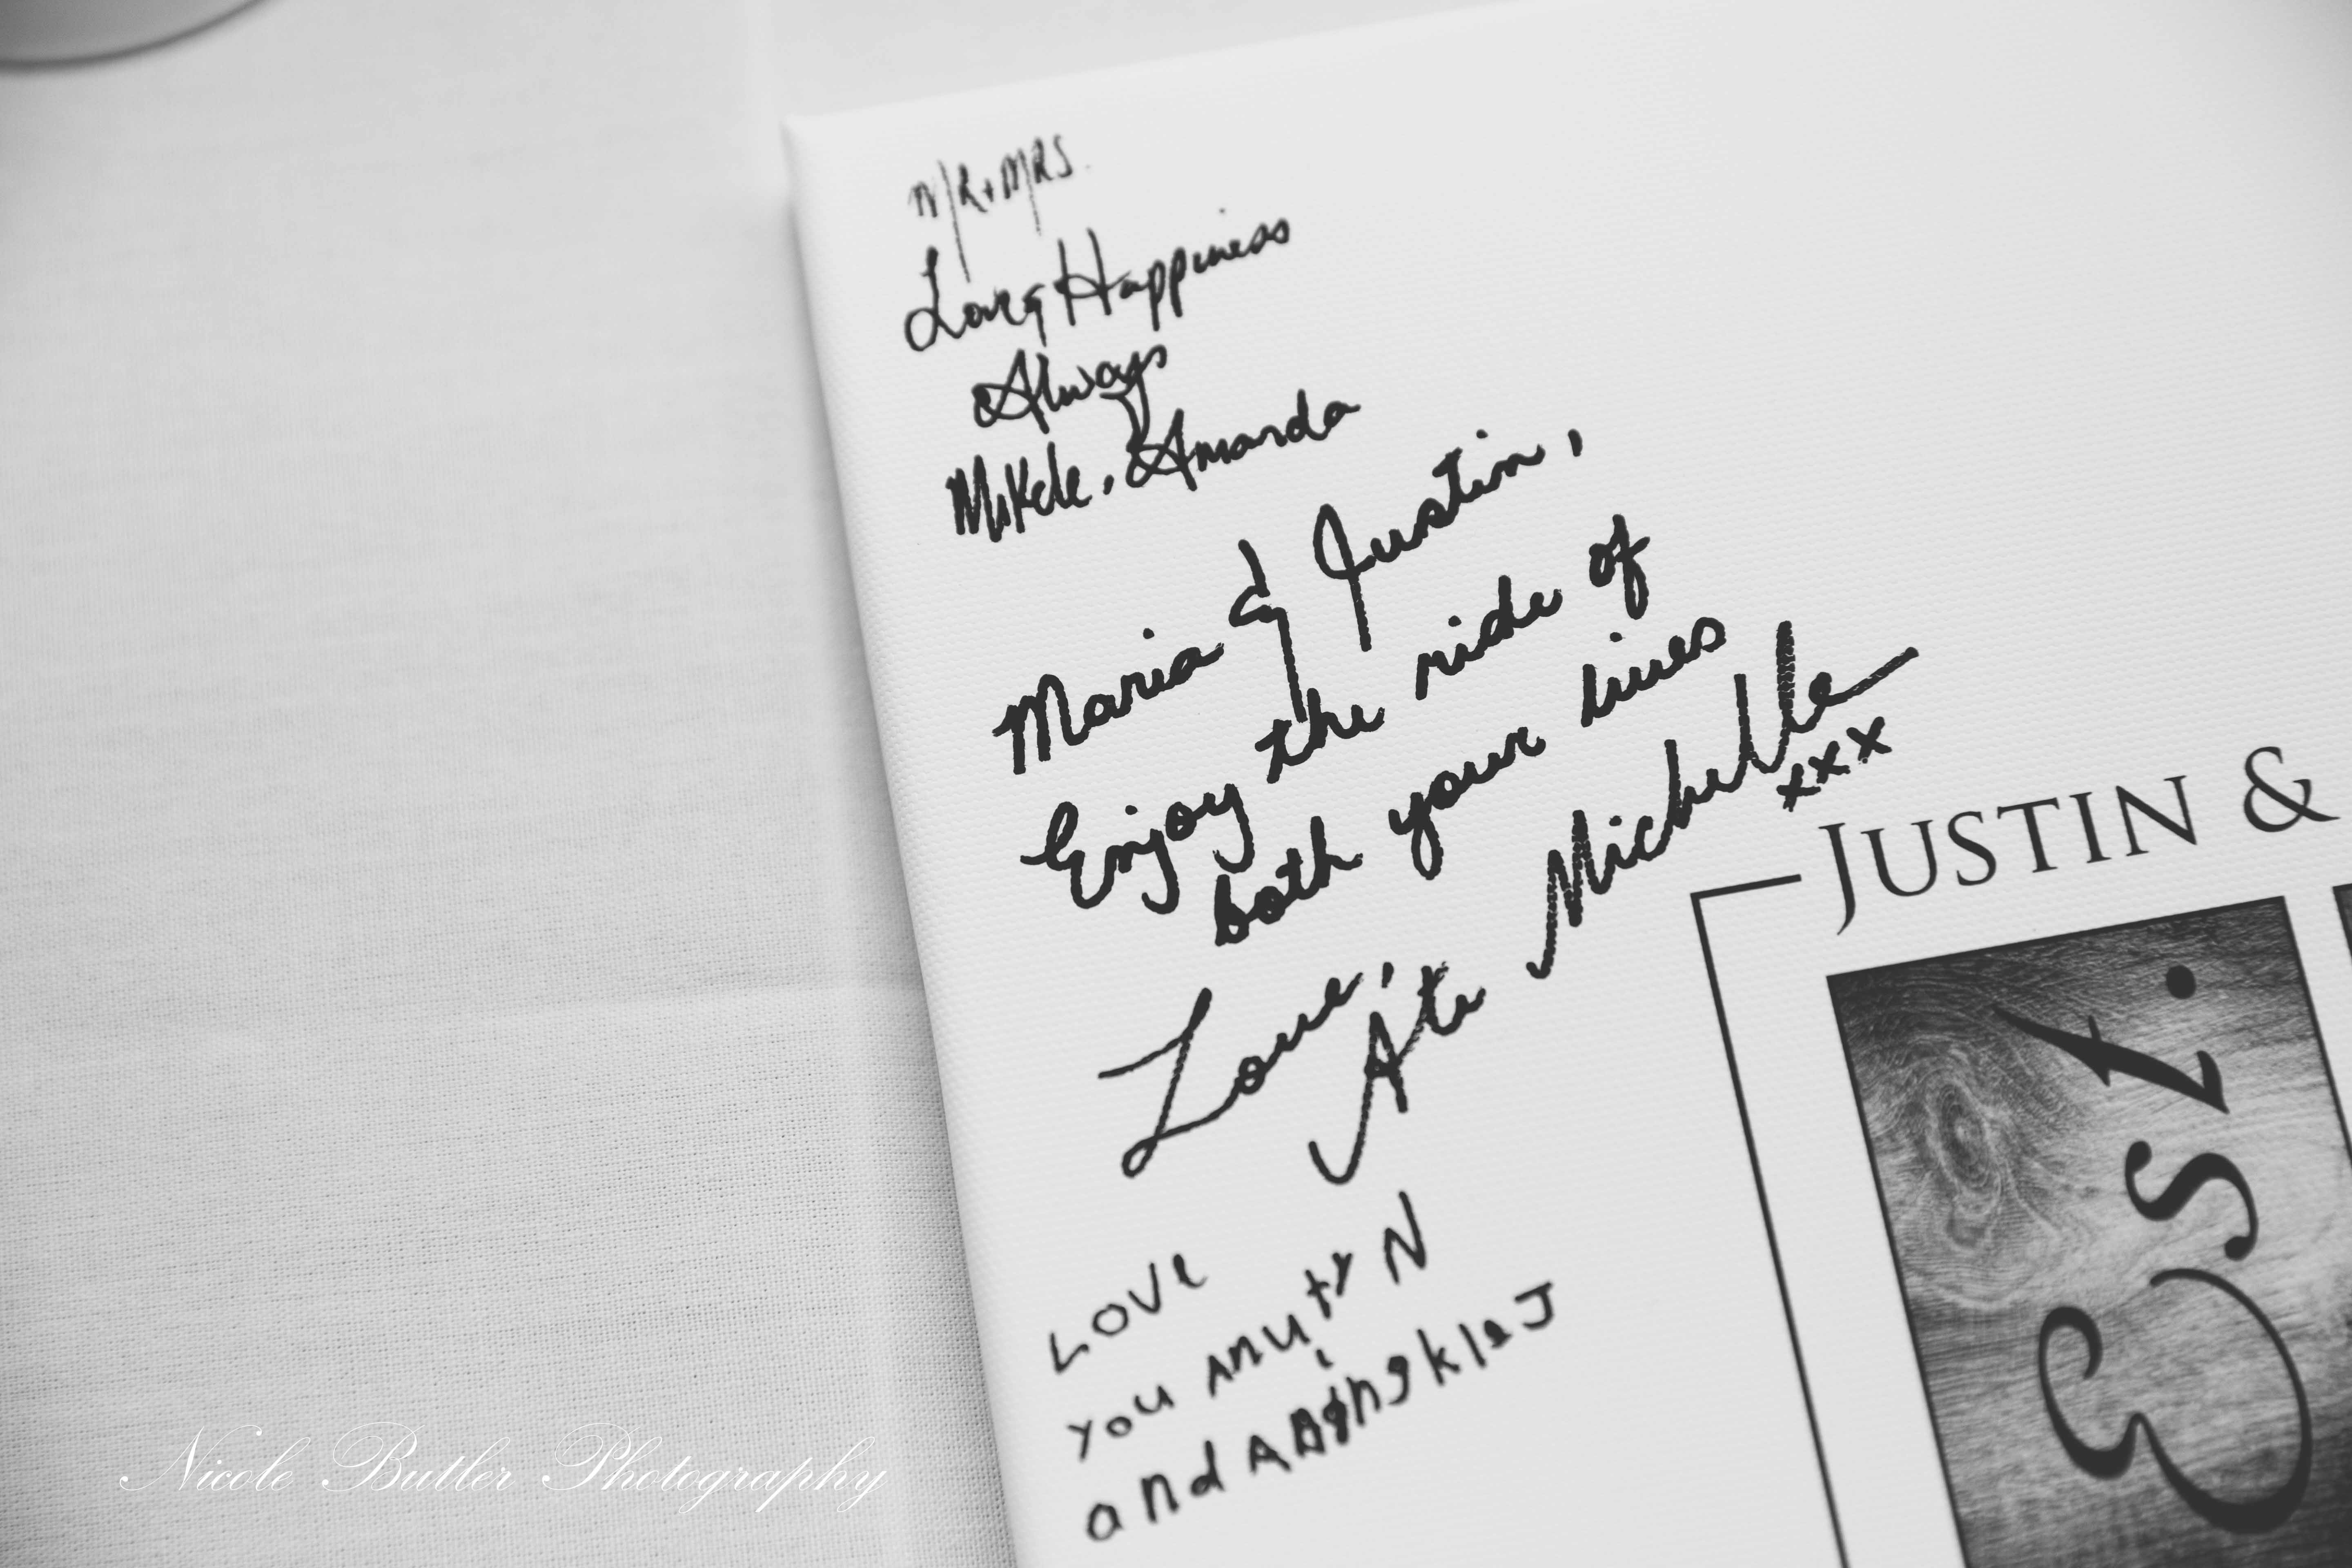 MR + MRS.
Love & Happiness
Always
Mikele, Amanda
Maria & Justin,
Enjoy the ride of
both your lives
Love,
Ate Michelle
xxx
LOVe
you
N
and
J
JUSTIN &
Est.
Nicole Butler Photography